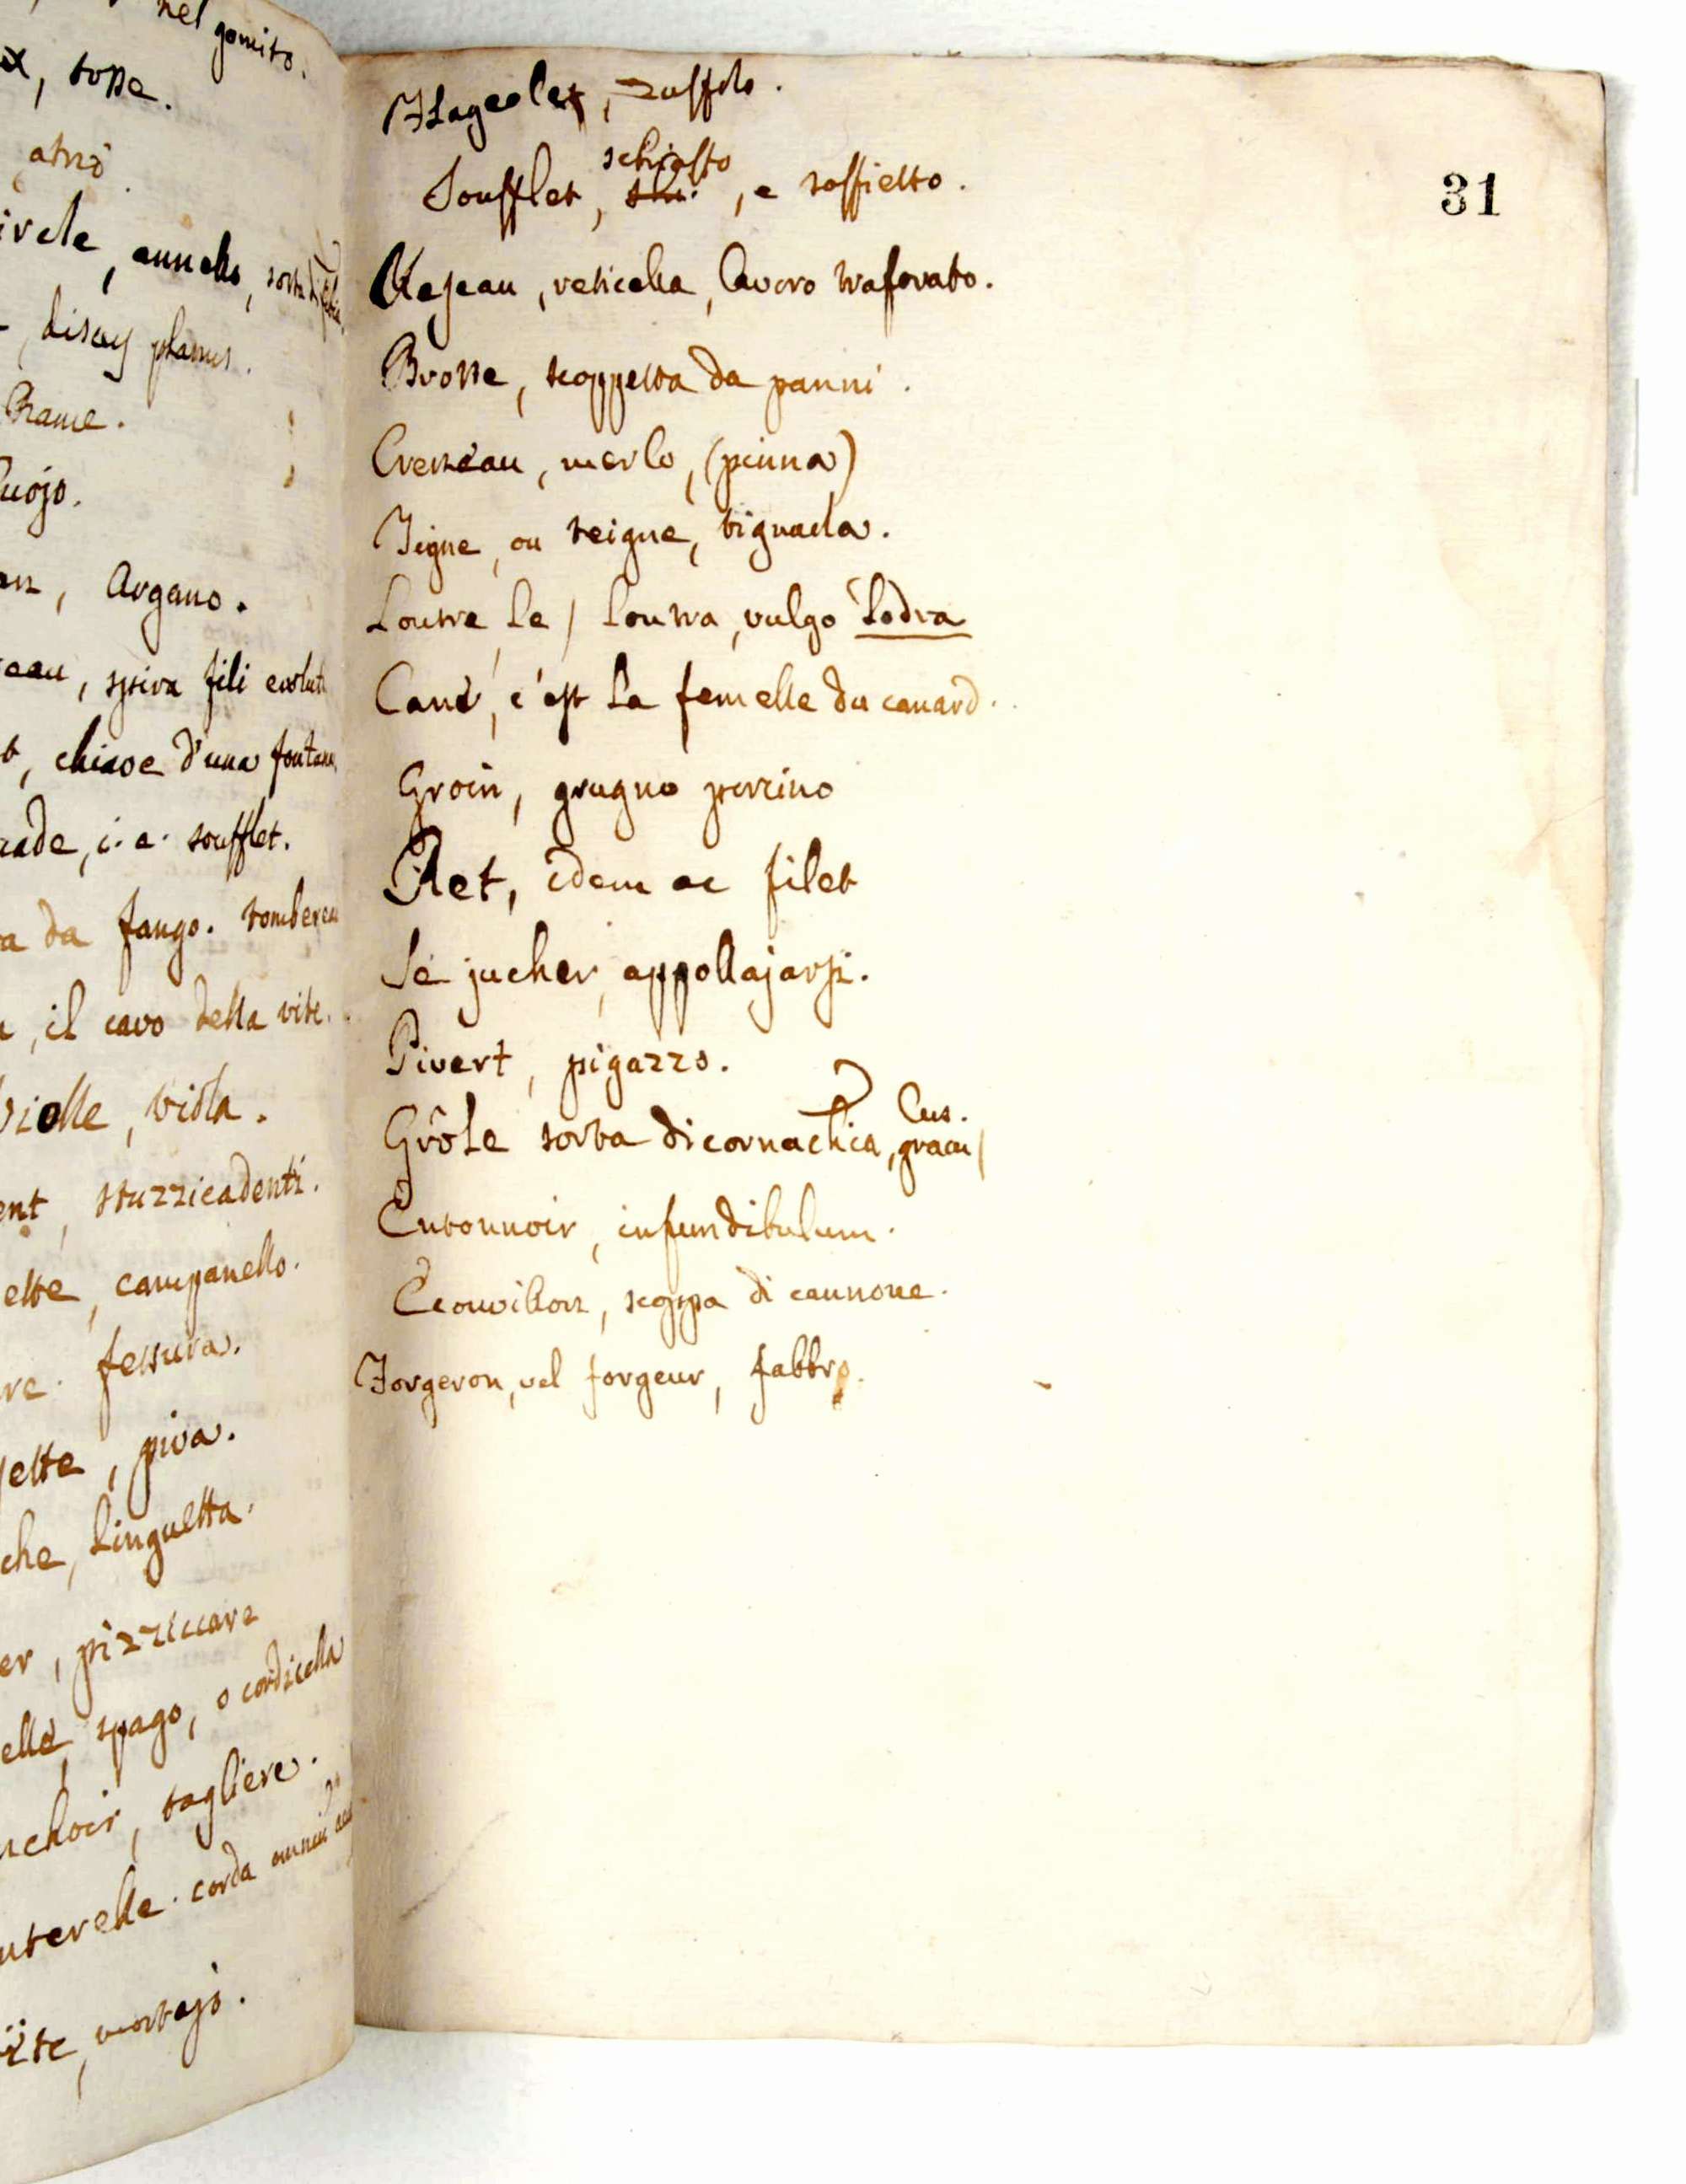 nel gomito.
, tosse.
atrio.
ircle, annello, sorta di
, discus planus.
Rame.
Cuojo.
an, Argano.
eau, spira fili evoluti
t, chiave d'una fontana
ade, i. e. soufflet.
a da fango. tombereau
, il cavo della vite.
Vielle, viola.
ent, stuzzicadenti.
ette, campanello.
re. fessura.
ette, piva.
che, linguetta.
er, pizziccare
elle, spago, o cordicella
choir, tagliere.
nterelle. corda
ite, mortajo.
31
Flageolet, zuffolo.
schiaffo
Soufflet, , e soffietto.
Reseau, reticella, lavoro traforato.
Brosse, scoppetta da panni.
Creneau, merlo, (pinna)
Tigne, ou teigne, tignuola.
Loutre, le / loutra, vulgo Lodra
Cane, c'est la femelle du canard.
Groin, grugno porcino
Ret, idem ac filet
Se jucher, appollajarsi.
Pivert, pigazzo.
Grôle sorta di cornachia, gracu/
lus.
Entonnoir, infundibulum.
Ecouvillon, scopa di cannone.
Forgeron, vel forgeur, fabbro.